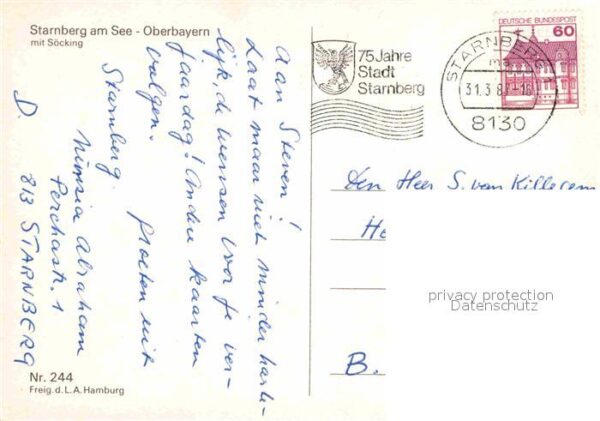 Starnberg am See - Oberbayern
mit Söcking
Aan Steven!
Laat maar niet minder harte-
lijk, de wensen voor je ver-
jaardag! Andere kaarten
volgen.
Groeten uit
Starnberg.
Abraham
Perchastr. 1
D. 813 STARNBERG
Nr. 244
Freig. d. L. A. Hamburg
75 Jahre
Stadt
Starnberg
STARNBERG
31.3.87-16
8130
DEUTSCHE BUNDESPOST
60
Den Heer S. van Killecem
He
B.
privacy protection
Datenschutz